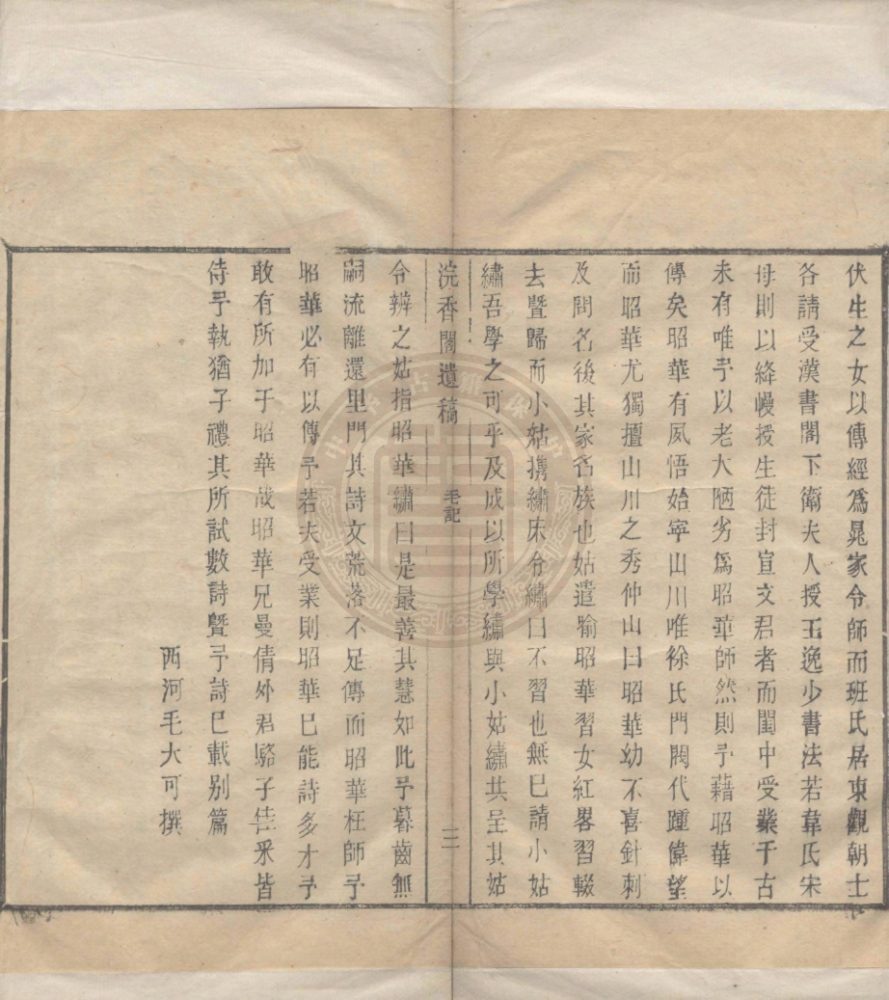 伏生之女以傳經爲晁家令師而班氏居東觀朝士
各請受漢書閣下衛夫人授王逸少書法若韋氏宋
母則以絳幔授生徒封宣文君者而閨中受業千古
未有唯予以老大陋劣爲昭華師然則予藉昭華以
傳矣昭華有夙悟始寧山川唯徐氏門閥代踵偉望
而昭華尤獨擅山川之秀仲山曰昭華幼不喜針刺
及問名後其家名族也姑遣喻昭華習女紅畧習輟
去暨歸而小姑攜繡床令繡曰不習也無已請小姑
繡吾學之可乎及成以所學繡與小姑繡共呈其姑
浣香閣遺稿 毛記 三
令辨之姑指昭華繡曰是最善其慧如此予暮齒無
嗣流離還里門其詩文荒落不足傳而昭華枉師予
昭華必有以傳予若夫受業則昭華已能詩多才予
敢有所加于昭華哉昭華兄曼倩外君駱子佳采皆
侍予執猶子禮其所試數詩曁予詩已載別篇
西河毛大可撰